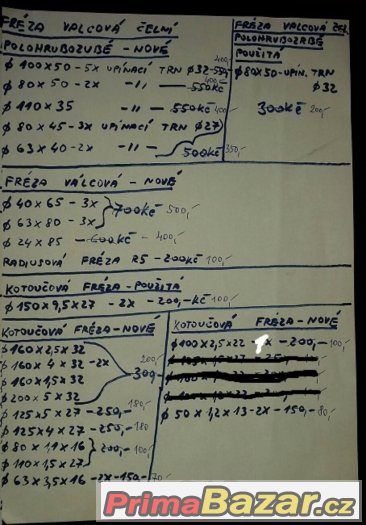 FRÉZA VALCOVÁ ČELNÍ
POLOHRUBOZUBÉ - NOVÉ
ϕ 100x50 - 5x UPÍNACÍ TRN ϕ32 - 400,-
ϕ 80x50 - 2x -"- 550KČ 400,-
ϕ 110x35 -"- 550KČ 400,-
ϕ 80x45 - 3x UPÍNACÍ TRN ϕ27
ϕ 63x40 - 2x -"- 500KČ 350,-
FRÉZA VALCOVÁ ČEL.
POLOHRUBOZUBÉ
POUŽITÁ
ϕ80x50-UPÍN. TRN
ϕ32
300KČ 200,-
FRÉZA VÁLCOVÁ - NOVÉ
ϕ 40 x 65 - 3x
ϕ 63 x 80 - 3x 700KČ 500,-
ϕ 24 x 85 - 600KČ - 400,-
RADIUSOVÁ FRÉZA R5 - 200KČ 100,-
KOTOUČOVÁ FRÉZA - POUŽITÁ
ϕ150x9,5x27 - 2x - 200,-KČ 100,-
KOTOUČOVÁ FRÉZA-NOVÉ
ϕ160x2,5x32
ϕ160x 4 x 32 -2x 200,-
ϕ160x1,5x32 300,-
ϕ 200x 5 x32 180,-
ϕ 125x5 x27 - 250,- 180
ϕ 125x4 x 27 - 250,- 180
ϕ 80 x 1,1x16 200,- 100,-
ϕ 110x1,5x27
ϕ 63 x 3,5x16 - 2x-150,- 70,-
KOTOUČOVÁ FRÉZA - NOVÉ
ϕ100x2,5x22 - 200,- 100,-
ϕ 50 x 1,2 x 13-2x - 150,- 80,-
PrimaBazar.cz